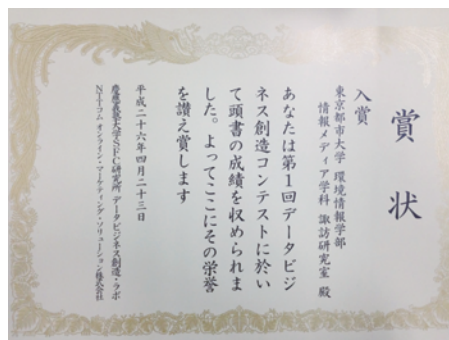 賞状
入賞
東京都市大学 環境情報学部
情報メディア学科 諏訪研究室 殿
あなたは第1回データビジ
ネス創造コンテストに於い
て頭書の成績を収められま
した。よってここにその栄誉
を讃え賞します
平成二十六年四月二十三日
慶應義塾大学SFC研究所 データビジネス創造・ラボ
NTTコム オンライン・マーケティング・ソリューション株式会社